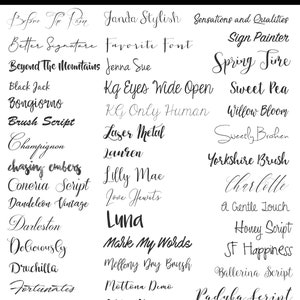 Before The Rain
Better Signature
Beyond The Mountains
Black Jack
Bongiorno
Brush Script
Champignon
chasing embers
Coneria Script
Dandelion Vintage
Darleston
Deliciously
Druchilla
Fortunates
Janda Stylish
Favorite Font
Jenna Sue
Kg Eyes Wide Open
KG Only Human
Laser Metal
Lauren
Lilly Mae
Love Hewits
Luna
Mark My Words
Mellony Dry Brush
Montana Demo
Sensations and Qualities
Sign Painter
Spring Time
Sweet Pea
Willow Bloom
Sweetly Broken
Yorkshire Brush
Charlotte
A Gentle Touch
Honey Script
SF Happiness
Ballerina Script
Script